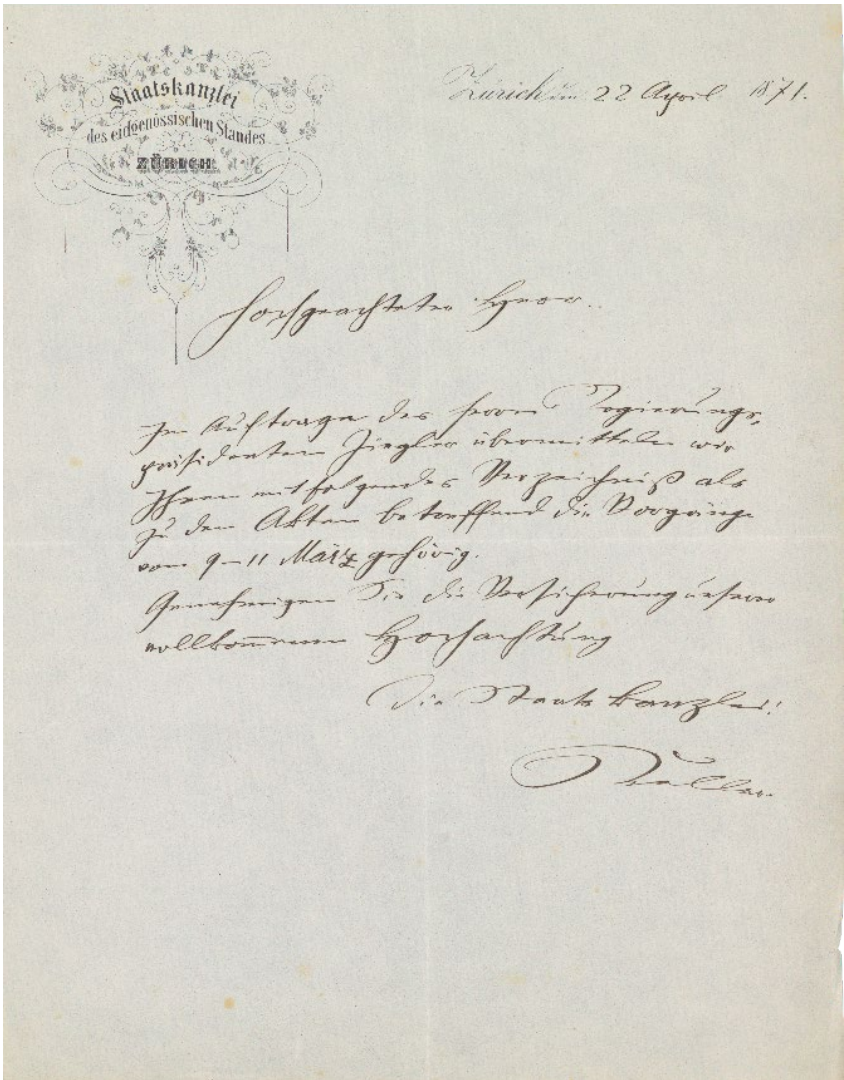 Staatskanzlei
des eidgenössischen Standes
ZÜRICH
Zürich den 22 April 1871.
Hochgeachteter Herr
Im Auftrage des Herrn Regierungs-
präsidenten Ziegler übermitteln wir
Ihnen mitfolgendes Verzeichniß als
zu den Akten betreffend die Vorgänge
vom 9–11 März gehörig.
Genehmigen Sie die Versicherung unserer
vollkommenen Hochachtung
Die Staatskanzlei:
Keller